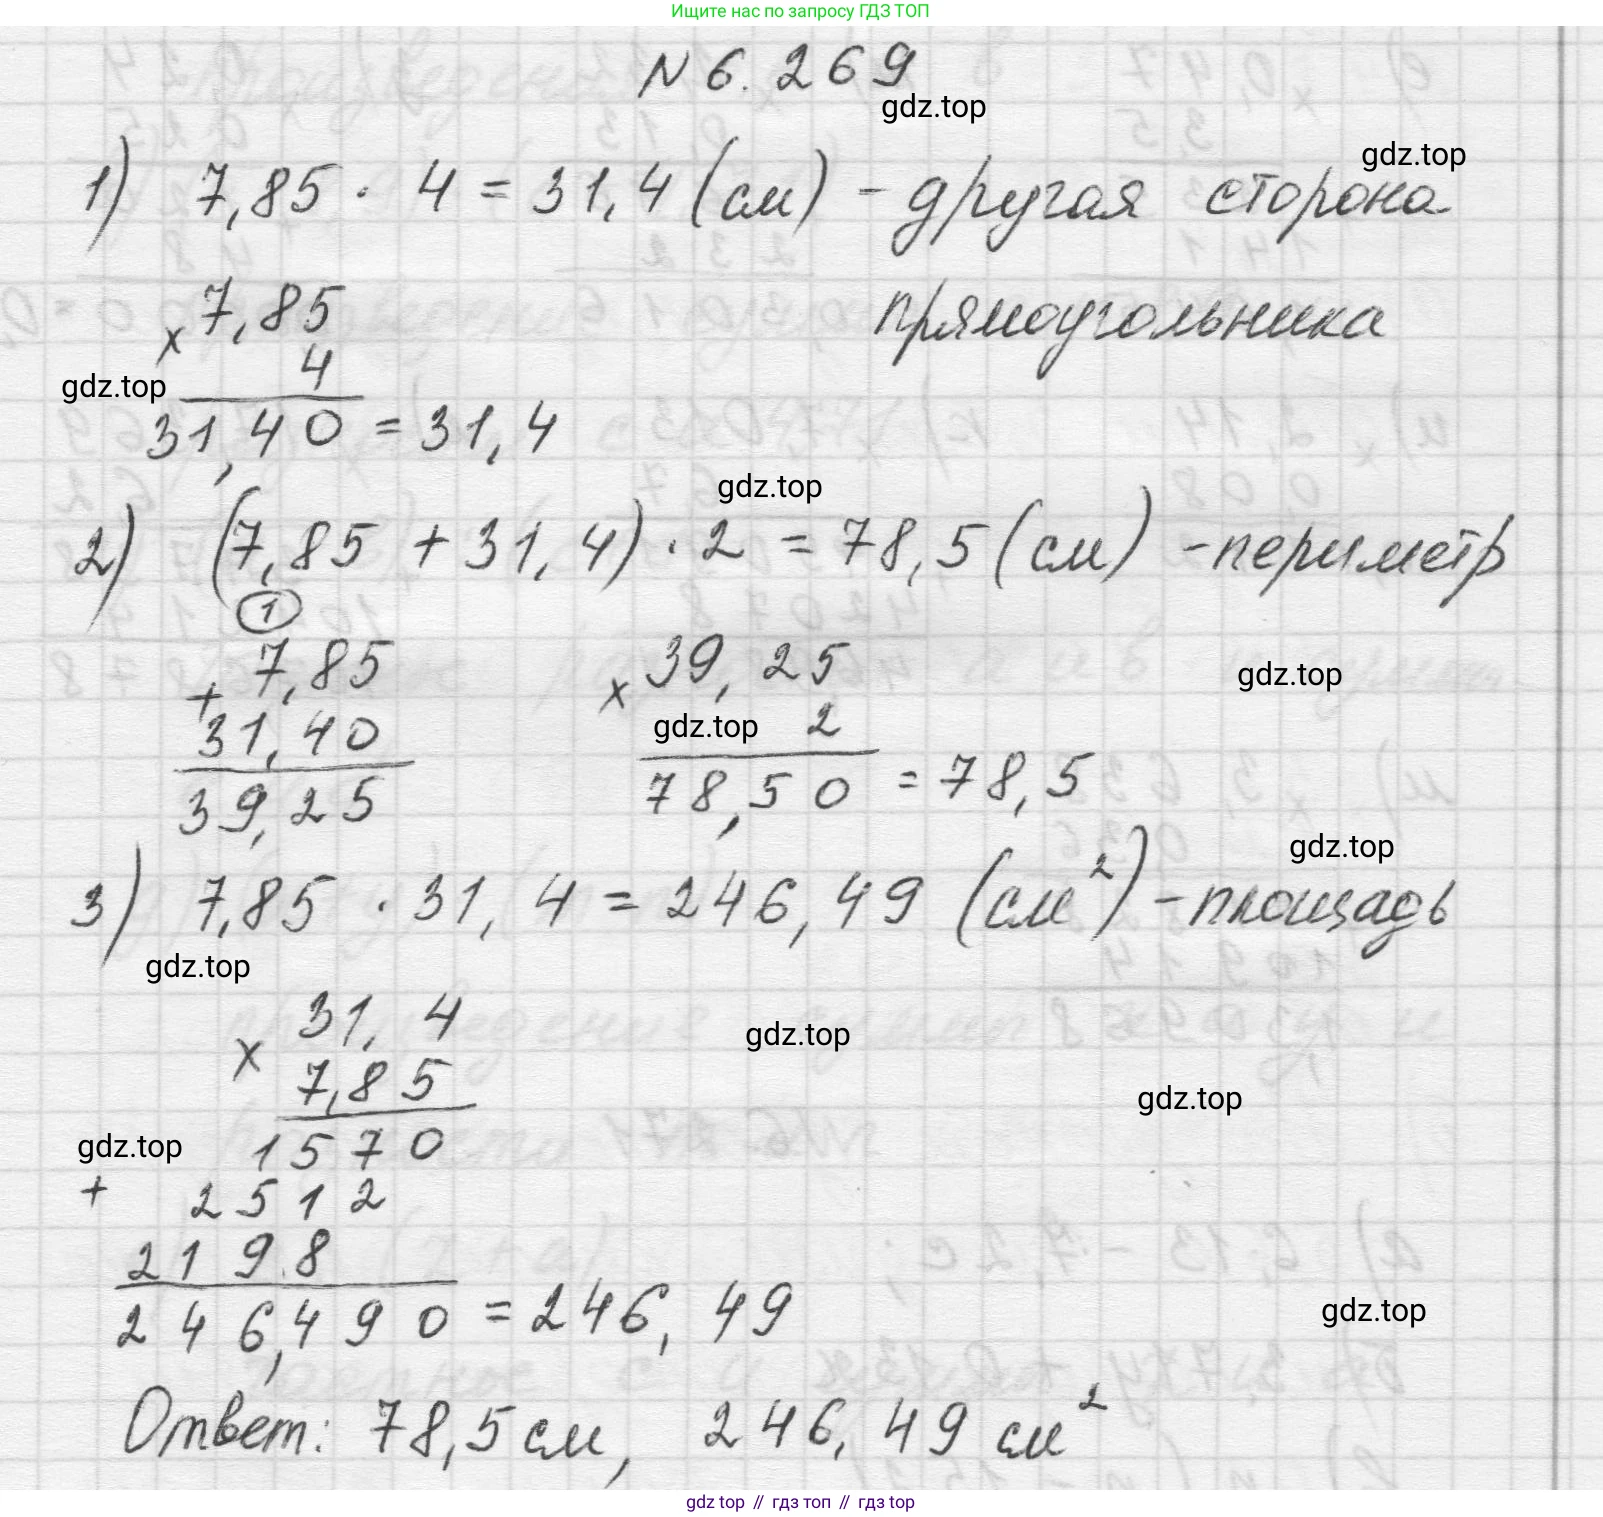 Ищите нас по запросу ГДЗ ТОП
N 6. 269
gdz.top
gdz.top
1) 7,85 · 4 = 31,4 (см) - другая сторона
прямоугольника
× 7,85
4
gdz.top
31,40 = 31,4
gdz.top
2) (7,85 + 31,4) · 2 = 78,5 (см) - периметр
1
+ 7,85
31,40
39,25
× 39,25
gdz.top
2
78,50 = 78,5
gdz.top
gdz.top
3) 7,85 · 31,4 = 246,49 (см²) - площадь
gdz.top
× 31,4
7,85
gdz.top
gdz.top
gdz.top
1570
+ 2512
2198
246,490 = 246,49
gdz.top
Ответ: 78,5 см, 246,49 см²
gdz top // гдз топ // gdz top